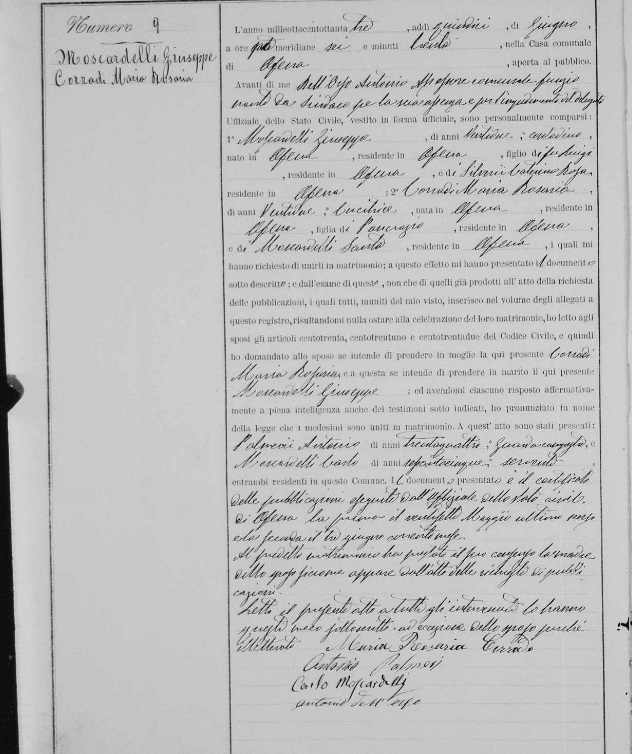 Numero 9
Moscardelli Giuseppe
Corradi Maria Rosaria
L'anno milleottocentottanta tre, addì quindici, di Giugno,
a ore meridiane sei e minuti trenta, nella Casa comunale
di Ofena, aperta al pubblico.
Avanti di me Dell'Orso Antonio Assessore comunale funzio
nante da Sindaco per la sua assenza e per l'impedimento del delegato
Uffiziale dello Stato Civile, vestito in forma ufficiale, sono personalmente comparsi:
1º Moscardelli Giuseppe, di anni ventidue, contadino,
nato in Ofena, residente in Ofena, figlio di fu Luigi
, residente in Ofena, e di Silveri Caterina Rosa
residente in Ofena; 2º Corradi Maria Rosaria,
di anni Ventidue, Cucitrice, nata in Ofena, residente in
Ofena, figlia di Pancrazio, residente in Ofena,
e di Moscardelli Santa, residente in Ofena, i quali mi
hanno richiesto di unirli in matrimonio; a questo effetto mi hanno presentato il documento
sotto descritto; e dall'esame di questo, non che di quelli già prodotti all'atto della richiesta
delle pubblicazioni, i quali tutti, muniti del mio visto, inserisco nel volume degli allegati a
questo registro, risultandomi nulla ostare alla celebrazione del loro matrimonio, ho letto agli
sposi gli articoli centotrenta, centotrentuno e centotrentadue del Codice Civile, e quindi
ho domandato allo sposo se intende di prendere in moglie la qui presente Corradi
Maria Rosaria, e a questa se intende di prendere in marito il qui presente
Moscardelli Giuseppe; ed avendomi ciascuno risposto affermativa-
mente a piena intelligenza anche dei testimoni sotto indicati, ho pronunziato in nome
della legge che i medesimi sono uniti in matrimonio. A quest'atto sono stati presenti:
Palmeri Antonio di anni trentaquattro, Guardia campestre, e
Moscardelli Carlo di anni, serviente
entrambi residenti in questo Comune. Il documento presentato è il certificato
delle pubblicazioni eseguite dall'Uffiziale dello stato civile
di Ofena la prima il ventisette Maggio ultimo scorso
e la seconda il tre giugno corrente mese.
Al predetto matrimonio ha prestato il suo consenso la madre
dello sposo siccome appare dall'atto delle richieste di pubbli
cazioni.
Letto il presente atto a tutti gli intervenuti lo hanno
questi meco sottoscritto, ad eccezione dello sposo perché
illetterato Maria Rosaria Corrado
Antonio Palmeri
Carlo Moscardelli
Antonio dell'Orso